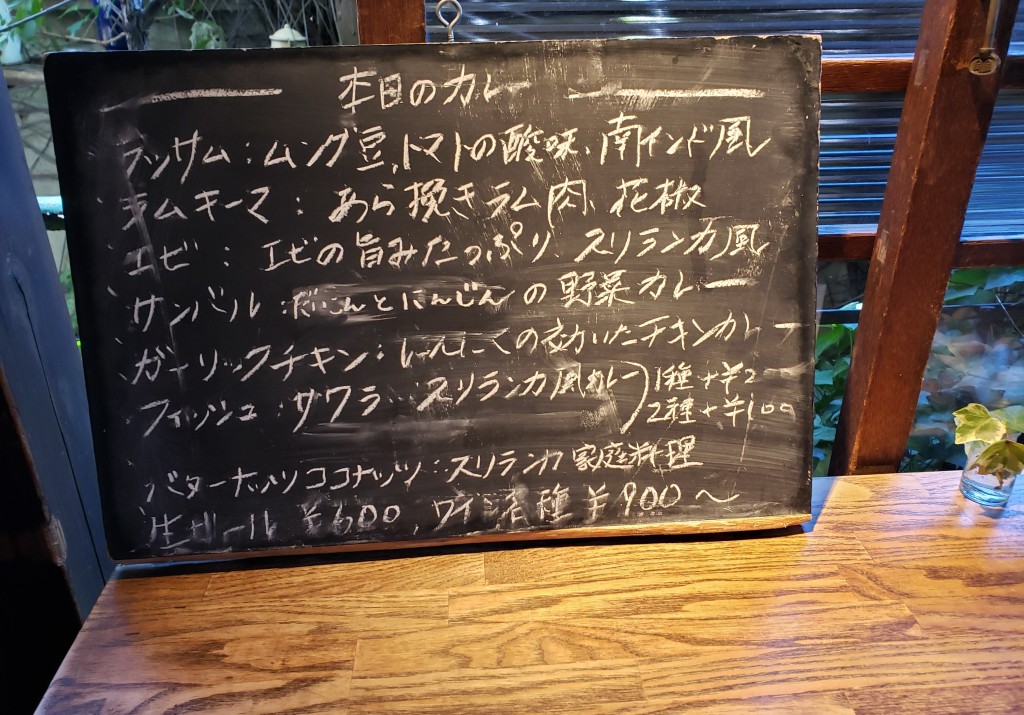 本日のカレー
ラッサム：ムング豆、トマトの酸味、南インド風
ラムキーマ：あら挽きラム肉、花椒
エビ：エビの旨みたっぷり、スリランカ風
サンバル だいこんとにんじんの野菜カレー
ガーリックチキン：にんにくの効いたチキンカレー
フィッシュ：サワラ スリランカ風カレー 1種+¥2
2種+¥100
バターナッツココナッツ：スリランカ家庭料理
生ビール ¥600、ワイン各種 ¥900〜